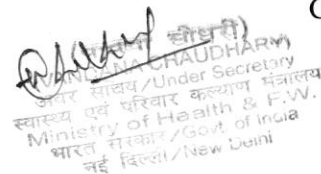 चौधरी)
CHAUDHARY)
/Under Secretary
स्वास्थ्य एवं परिवार कल्याण मंत्रालय
Ministry of Health & F.W.
भारत सरकार/Govt. of India
नई दिल्ली/New Delhi